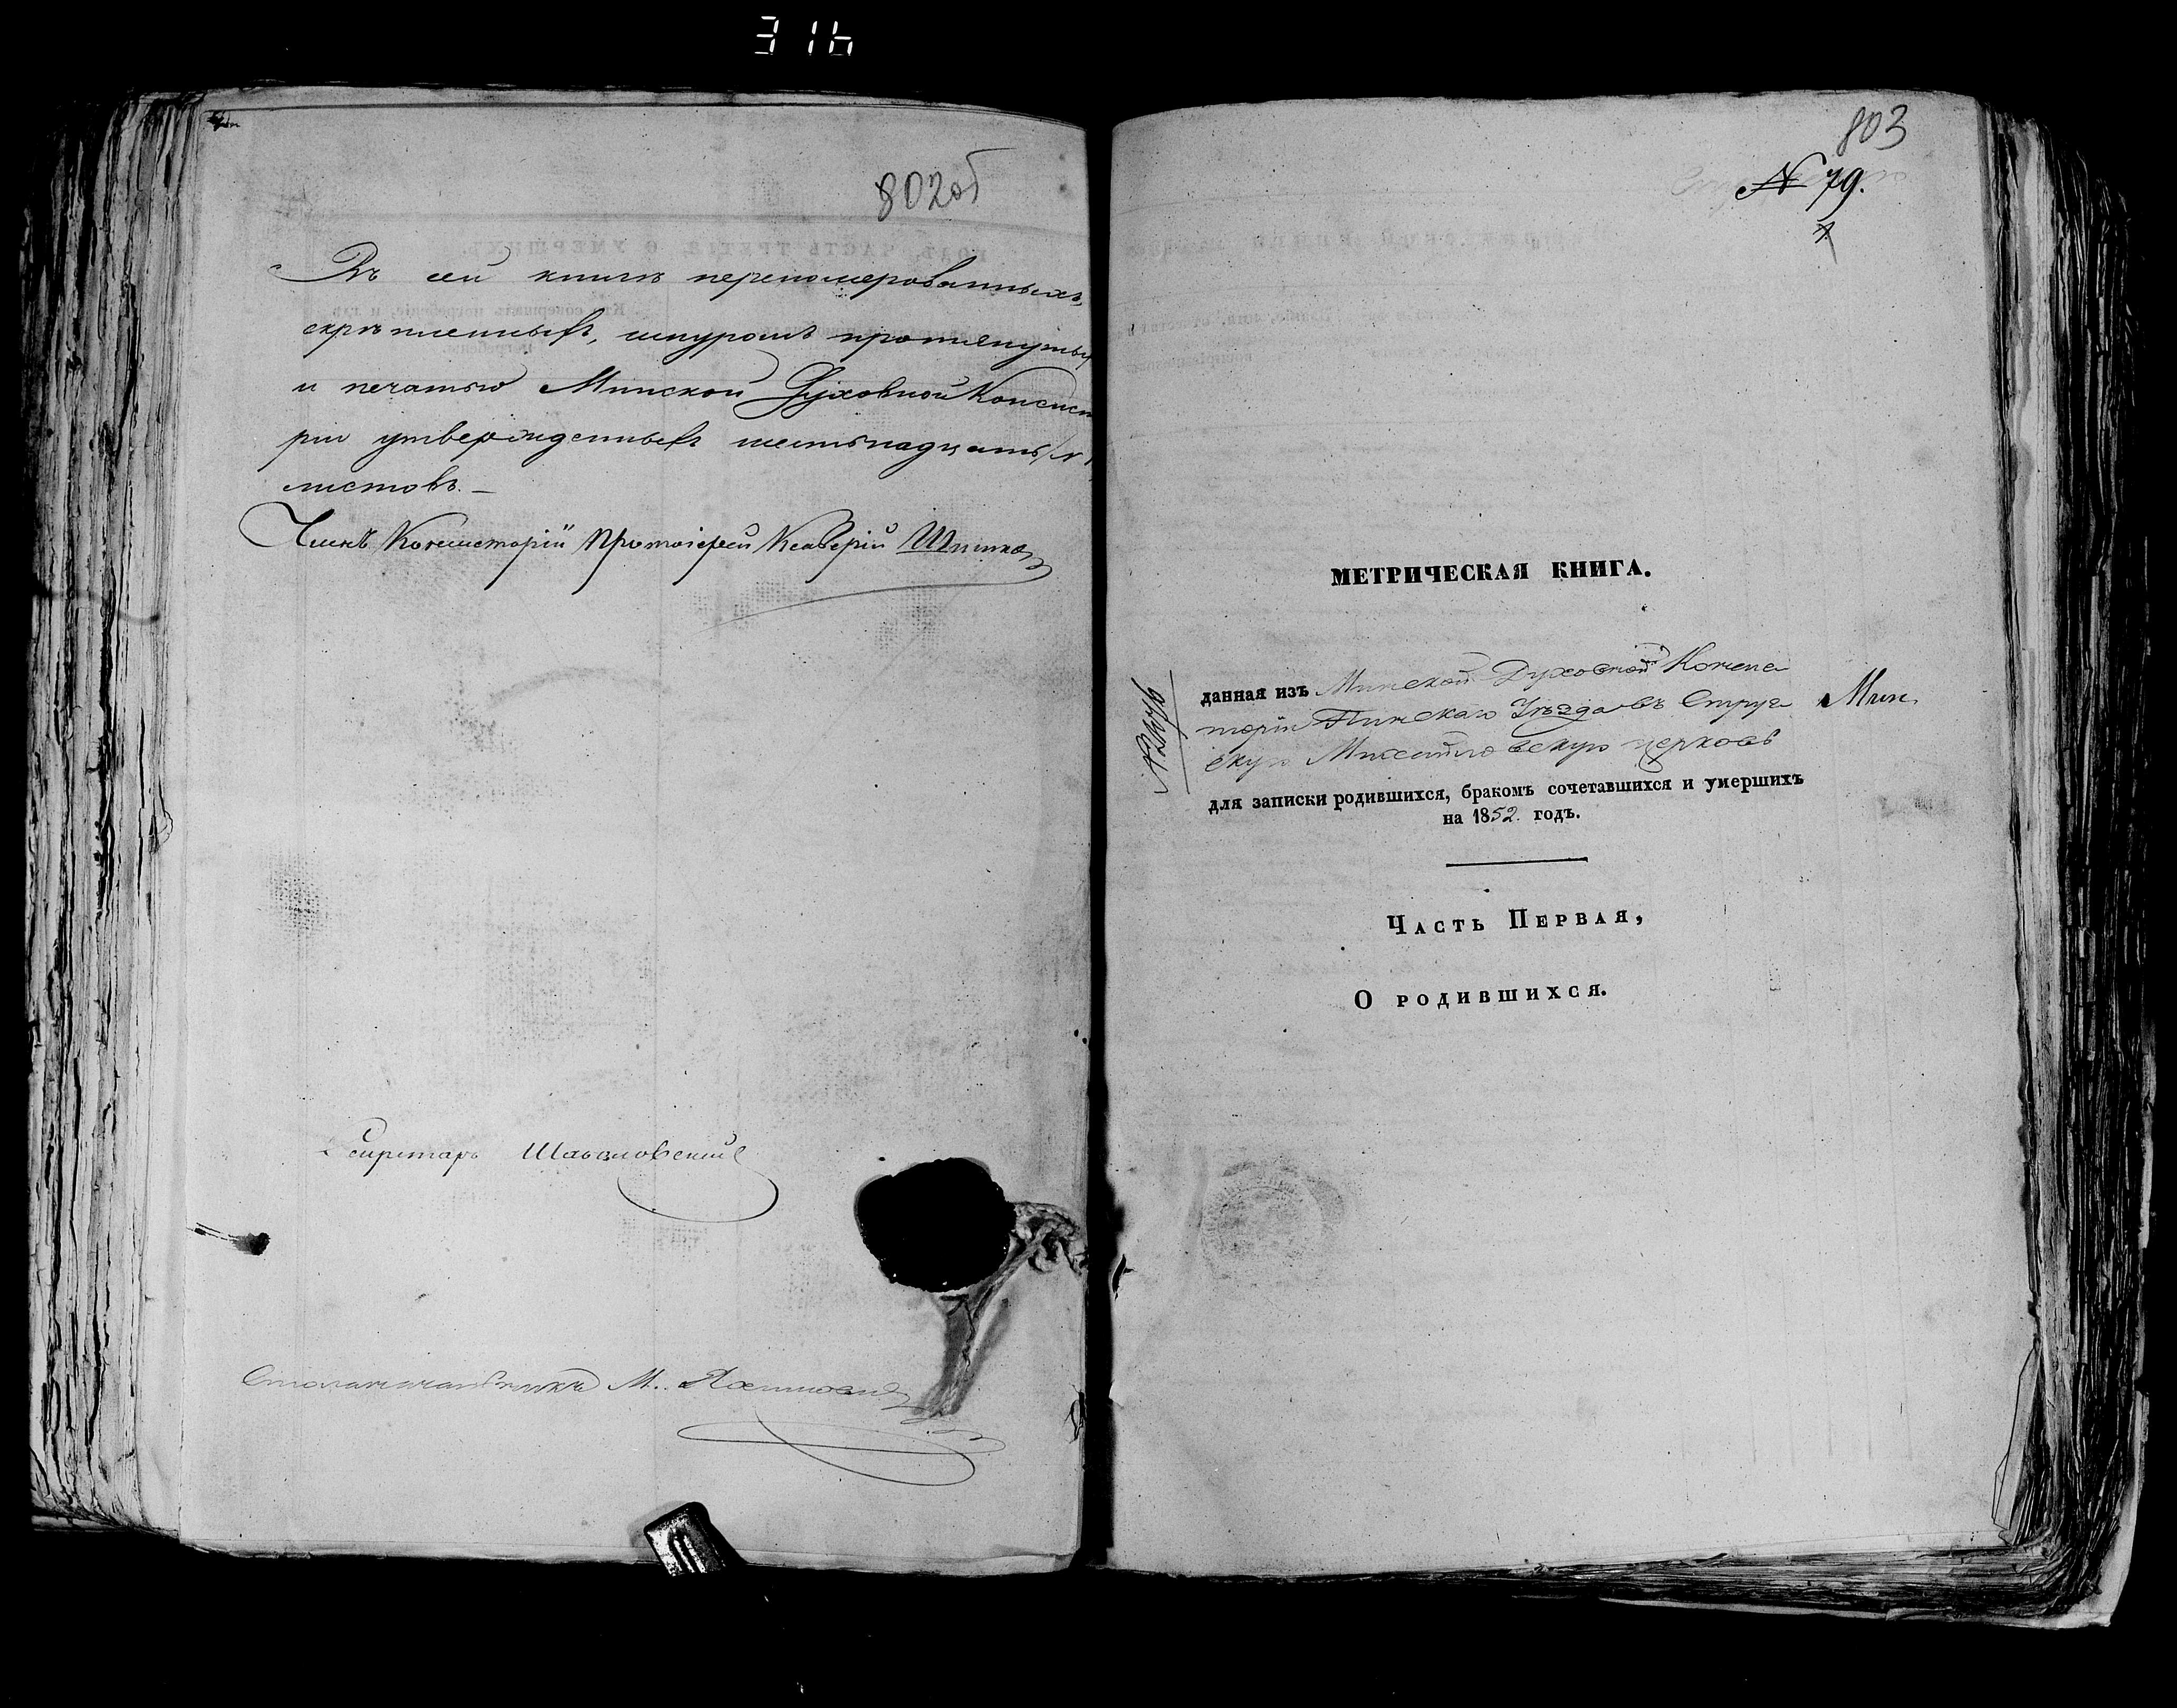 316
802об
Въ сей книгѣ переномерованныхъ,
скрѣпленныхъ, шнуромъ протянутых
и печатью Минской Духовной Консист
ріи утвержденныхъ шестьнадцать
листовъ. —
Членъ Консисторіи Протоіерей Ксаверій
Секретарь
М.
803
№ 79.
1
МЕТРИЧЕСКАЯ КНИГА.
данная изъ Минской Духовной Консис
торіи Пинскаго Уѣзда въ Струг Мин.
скую Михайловскую церковь
для записки родившихся, бракомъ сочетавшихся и умершихъ
на 1852 годъ.
Часть Первая,
О родившихся.